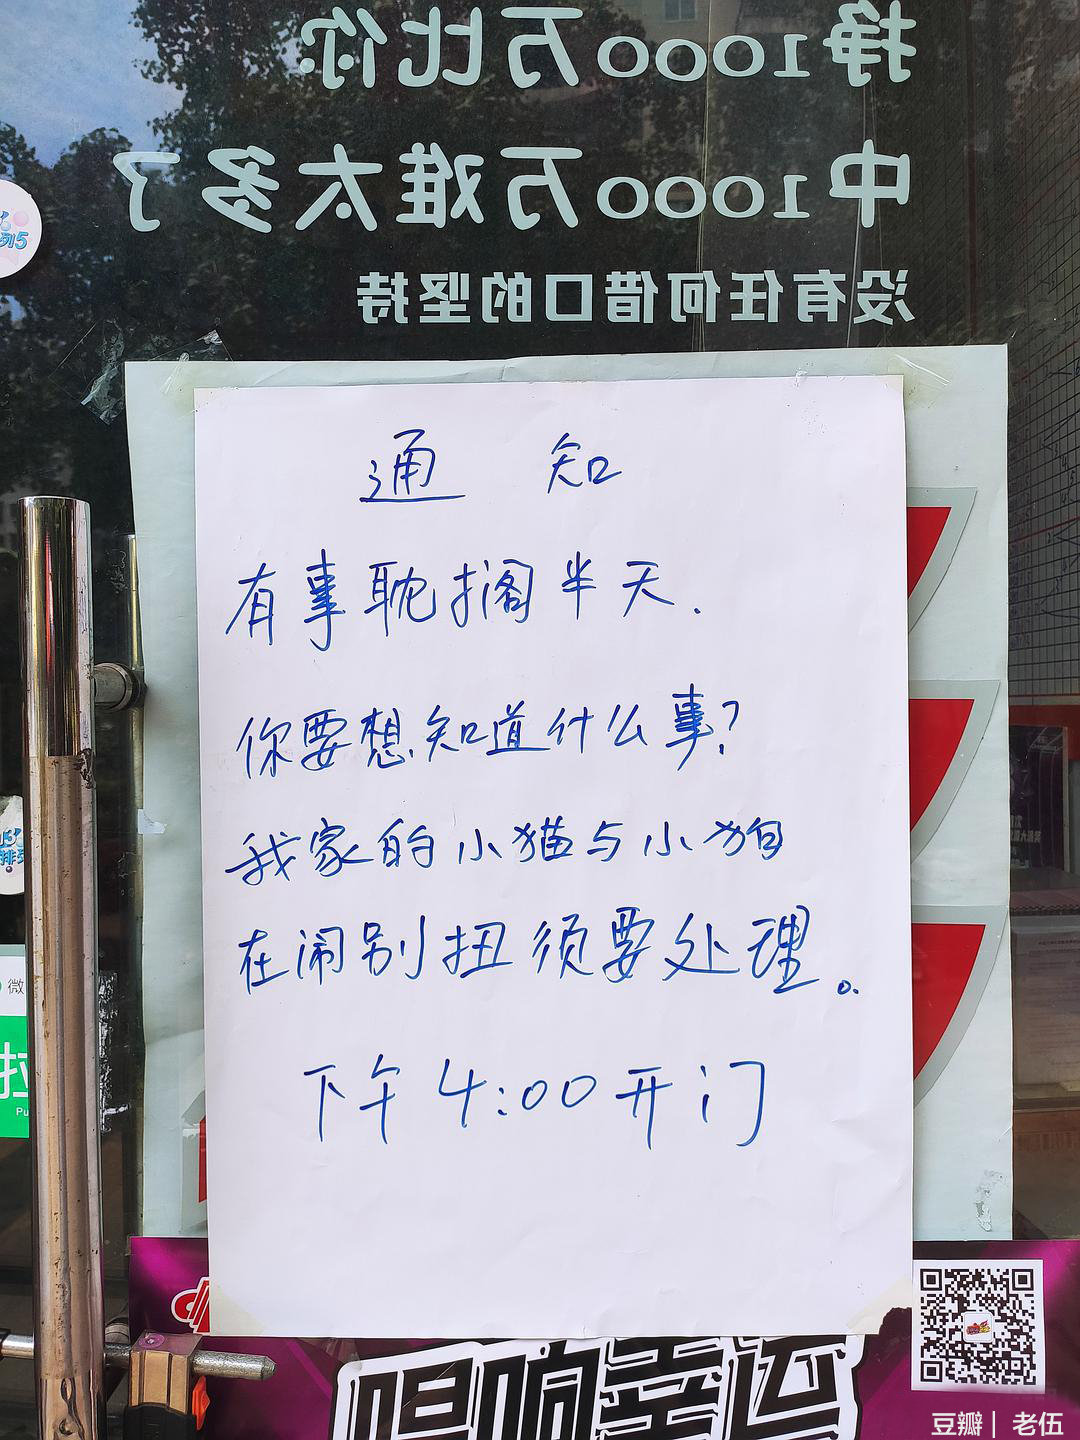 挣1000万比你
中1000万难太多了
没有任何借口的坚持
列5
通 知
有事耽搁半天.
你要想知道什么事?
我家的小猫与小狗
在闹别扭须要处理。
下午4:00开门
排
微
拉
Pu
唱响幸运
豆瓣| 老伍